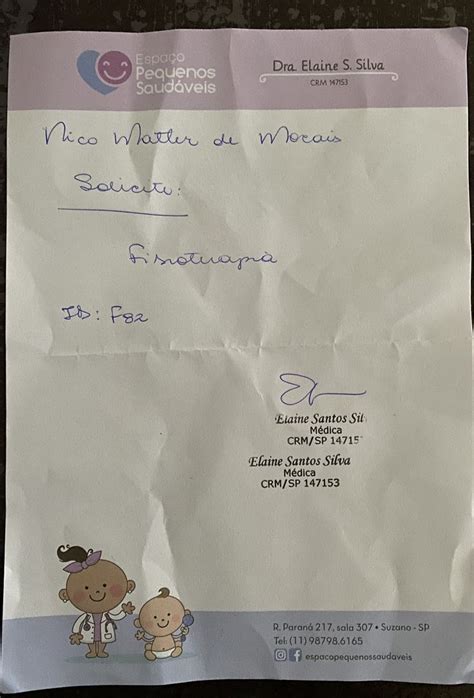 Espaço
Pequenos
Saudáveis
Dra. Elaine S. Silva
CRM 147153
Nico Matter de Morais
Solicito:
Fisioterapia
ID: F82
Elaine Santos Sil
Médica
CRM/SP 14715
Elaine Santos Silva
Médica
CRM/SP 147153
R. Paraná 217, sala 307 • Suzano - SP
Tel: (11) 98798.6165
espacopequenossaudaveis